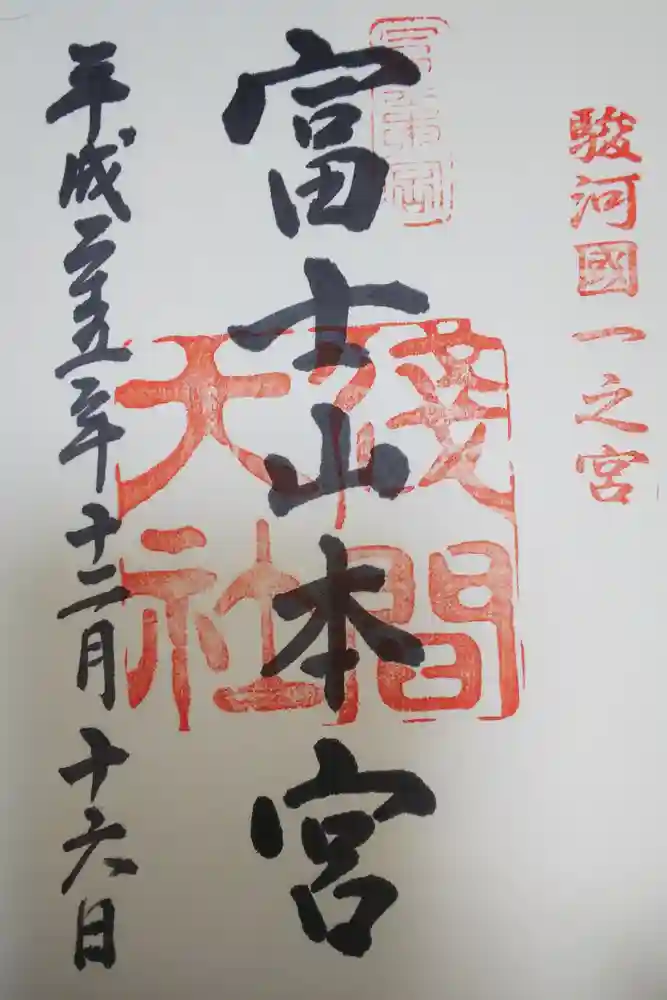 駿河國一之宮
富士山本宮
淺間大社
平成二十五年十二月十六日